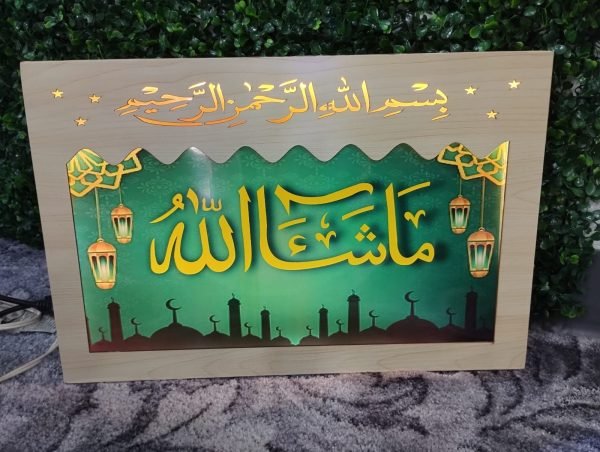 بِسْمِ اللهِ الرَّحْمٰنِ الرَّحِيْمِ
مَا شَاءَ اللّٰهُ